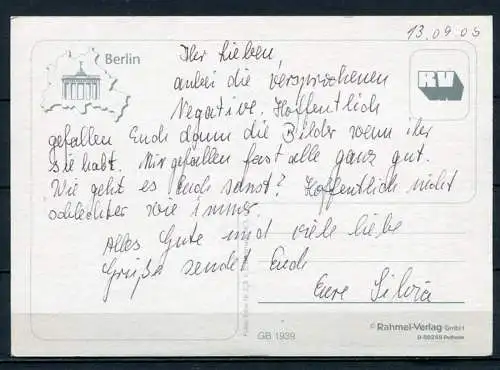 13.09.05
Berlin
Ihr Lieben,
RV
anbei die versprochenen
Negative. Hoffentlich
gefallen Euch dann die Bilder wenn ihr
sie habt. Mir gefallen fast alle ganz gut.
Wie geht es Euch sonst? Hoffentlich nicht
schlechter wie immer.
Alles Gute und viele liebe
Grüße sendet Euch
Eure Silvia
GB 1939
© Rahmel-Verlag GmbH